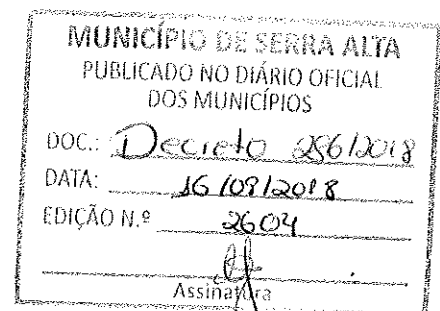 MUNICÍPIO DE SERRA ALTA
PUBLICADO NO DIÁRIO OFICIAL
DOS MUNICÍPIOS
DOC.: Decreto 286/2018
DATA: 16/09/2018
EDIÇÃO N.º 2604
Assinatura